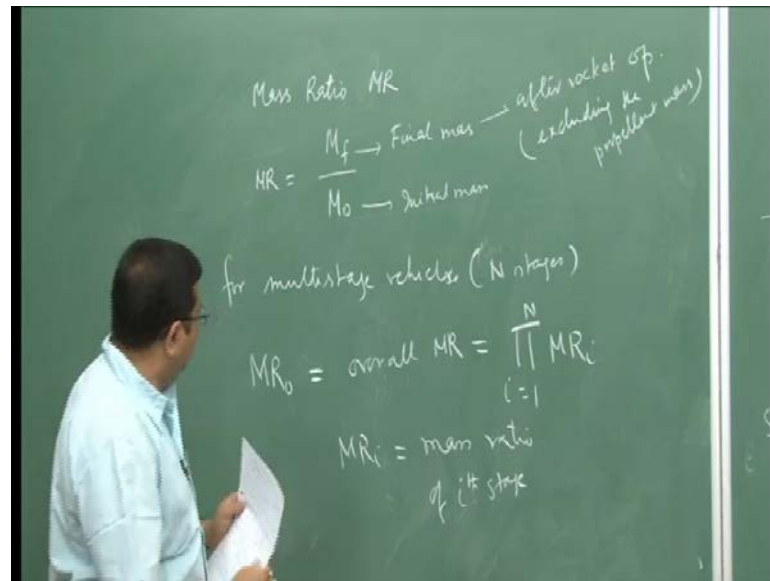 Mass Ratio MR
MR = M_f → Final mass → after rocket op.
(excluding the
propellant mass)
M_0 → Initial mass
for multistage vehicles (N stages)
MR_0 = overall MR = ∏_{i=1}^{N} MR_i
MR_i = mass ratio
of ith stage